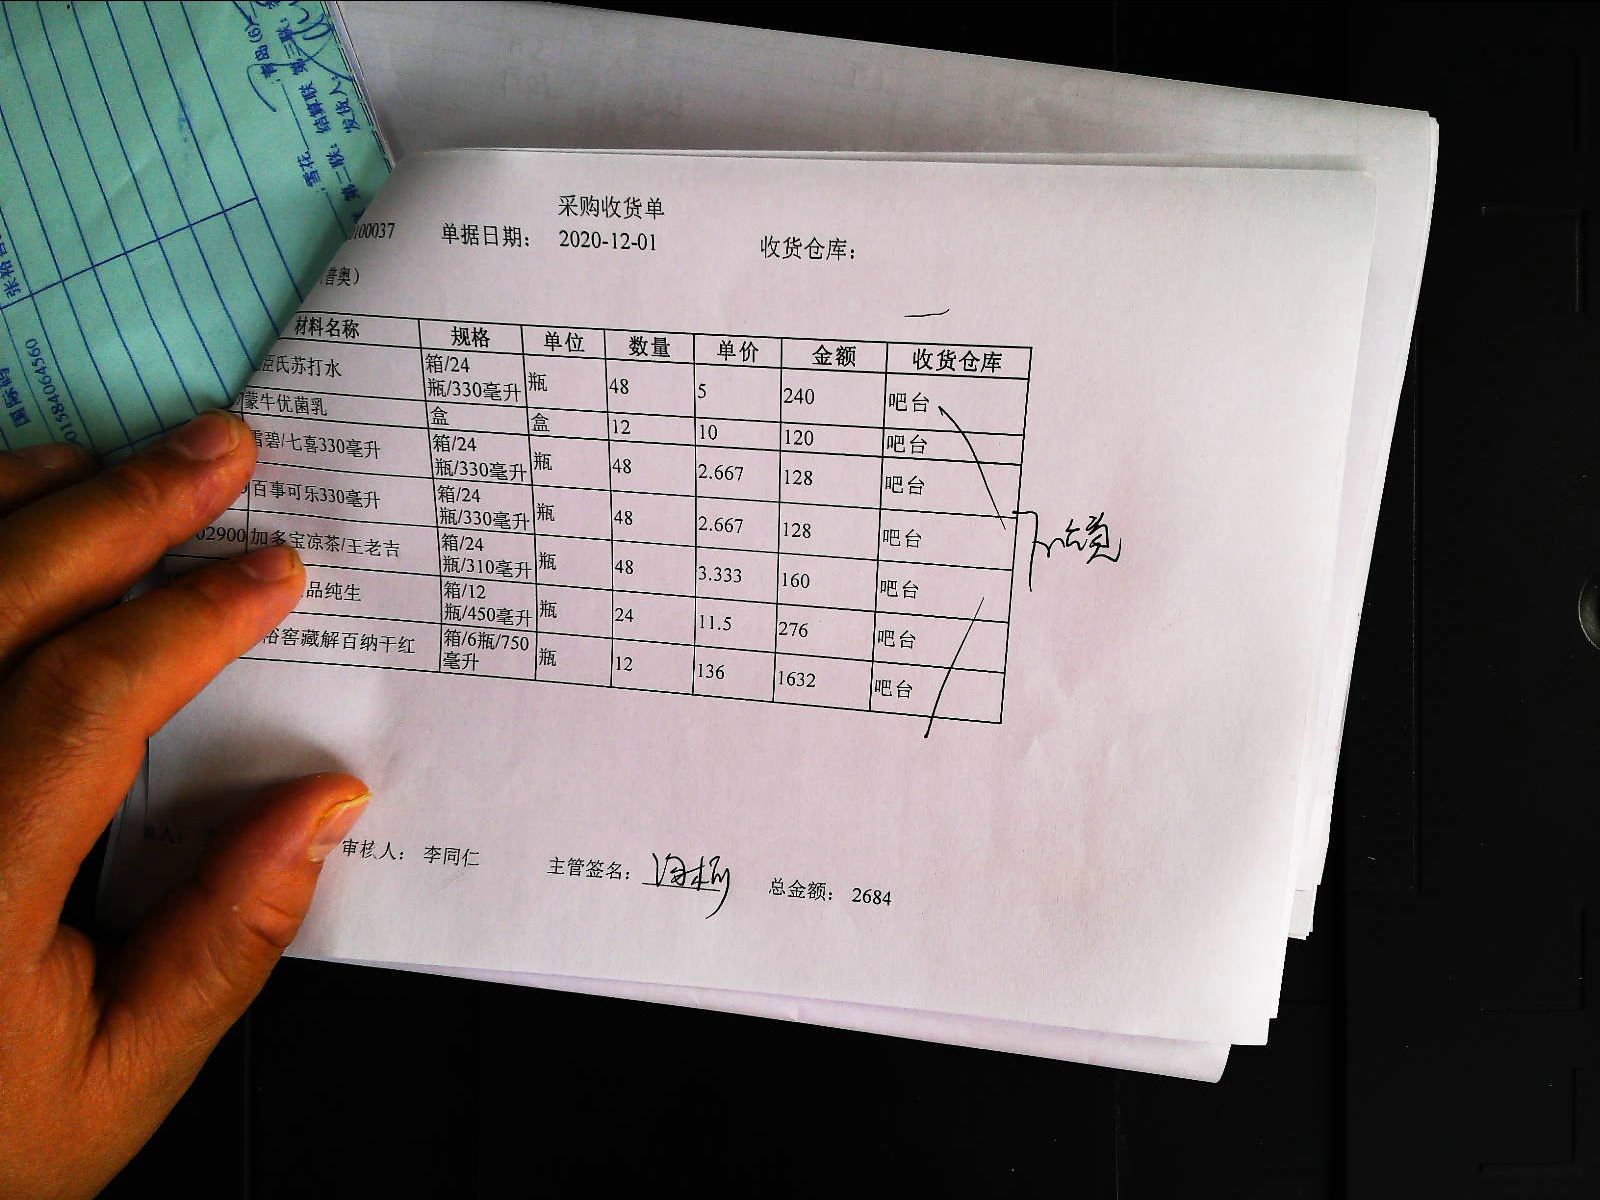 采购收货单
100037 单据日期: 2020-12-01 收货仓库:
普奥)
材料名称 规格 单位 数量 单价 金额 收货仓库
臣氏苏打水 箱/24瓶/330毫升 瓶 48 5 240 吧台
蒙牛优菌乳 盒 盒 12 10 120 吧台
雪碧/七喜330毫升 箱/24瓶/330毫升 瓶 48 2.667 128 吧台
百事可乐330毫升 箱/24瓶/330毫升 瓶 48 2.667 128 吧台
02900 加多宝凉茶/王老吉 箱/24瓶/310毫升 瓶 48 3.333 160 吧台
品纯生 箱/12瓶/450毫升 瓶 24 11.5 276 吧台
裕窖藏解百纳干红 箱/6瓶/750毫升 瓶 12 136 1632 吧台
审核人: 李同仁 主管签名: 总金额: 2684
青岛(6)
雪花
结算联 第三联:
第二联: 发货人:
国际码
01584064560